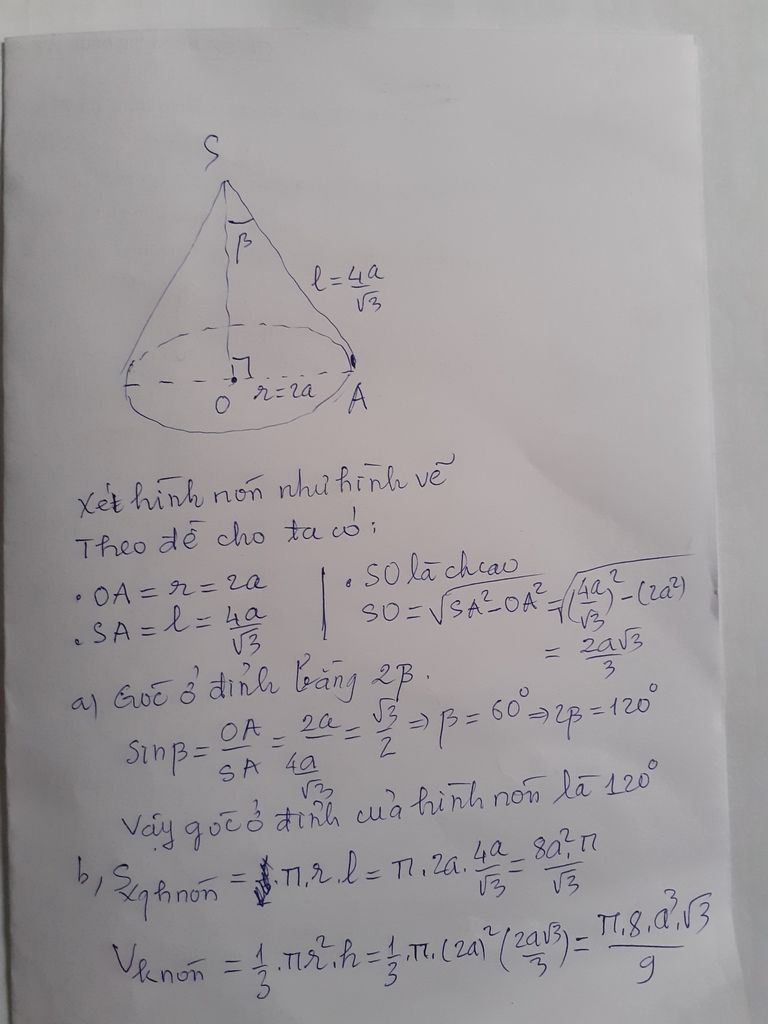 S
β
l = 4a/√3
O r = 2a A
Xét hình nón như hình vẽ
Theo đề cho ta có:
• OA = r = 2a
• SA = l = 4a/√3
• SO là ch cao
SO = √(SA² - OA²) = √((4a/√3)² - (2a²))
= 2a√3/3
a) Góc ở đỉnh bằng 2β.
Sinβ = OA/SA = 2a/(4a/√3) = √3/2 ⇒ β = 60° ⇒ 2β = 120°
Vậy góc ở đỉnh của hình nón là 120°
b, Sxqhnón = . π . r . l = π . 2a . 4a/√3 = 8a².π/√3
Vknón = 1/3 . πr² . h = 1/3 . π . (2a)² (2a√3/3) = π.8.a³.√3/9